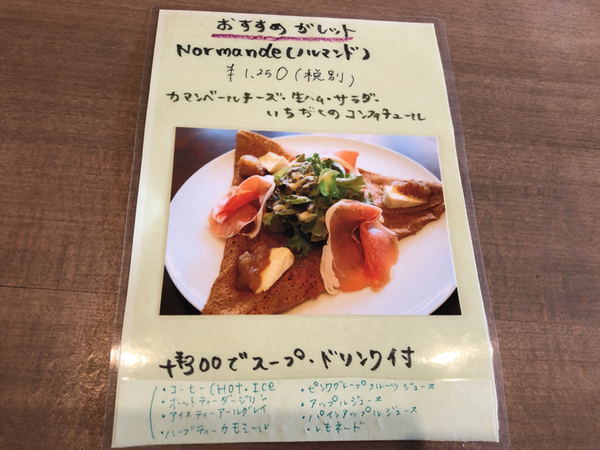 おすすめガレット
Normande(ノルマンド)
¥1,250(税別)
カマンベールチーズ・生ハム・サラダ・
いちぢくのコンフィチュール
+¥300でスープ・ドリンク付
・コーヒー(HOT・ICE
・ホットティーダージリン
・アイスティーアールグレイ
・ハーブティーカモミール
・ピンクグレープフルーツジュース
・アップルジュース
・パインアップルジュース
・レモネード